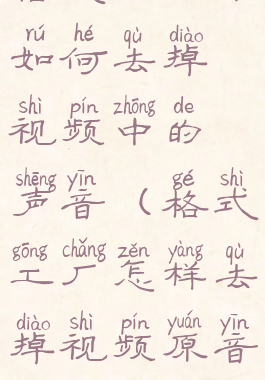 rú hé qù diào
如何去掉
shì pín zhōng de
视频中的
shēng yīn gé shì
声音（格式
gōng chǎng zěn yàng qù
工厂怎样去
diào shì pín yuán yīn
掉视频原音